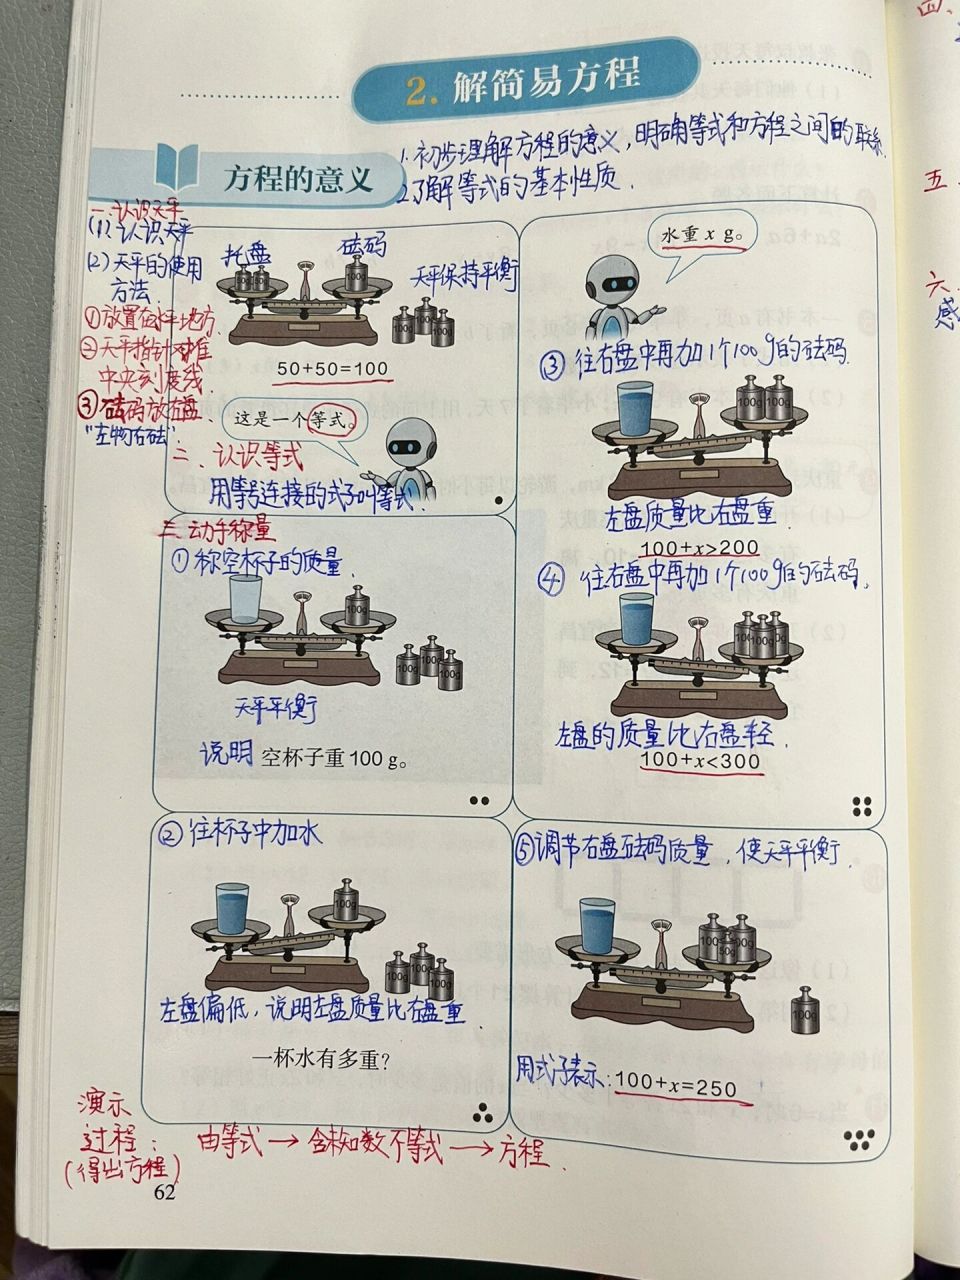 2. 解简易方程
1. 初步理解方程的意义，明确等式和方程之间的联系.
2. 了解等式的基本性质.
方程的意义
一. 认识天平
(1). 认识天平
(2) 天平的使用
方法.
①放置在水平地方.
②天平指针对准
中央刻度线.
③砝码放右盘、
"左物右砝".
托盘
砝码
天平保持平衡
50g 50g
100g
100g 100g 100g
50+50=100
这是一个等式。
二. 认识等式
用等号连接的式子叫等式.
三. 动手称量
①称空杯子的质量.
100g
100g 100g 100g
天平平衡
说明 空杯子重 100 g。
②往杯子中加水
100g
100g 100g 100g
左盘偏低，说明左盘质量比右盘重.
一杯水有多重？
水重 x g。
③往右盘中再加1个100g的砝码.
100g 100g
左盘质量比右盘重.
100+x>200
④往右盘中再加1个100g的砝码.
左盘的质量比右盘轻.
100+x<300
⑤调节右盘砝码质量，使天平平衡.
50g
100g
用式子表示: 100+x=250
演示
过程:
(得出方程)
由等式→含未知数不等式→方程.
62
四、
五、
六、
感